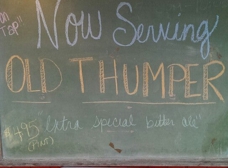 On Tap!
Now Serving
OLD THUMPER
$4.95 extra special bitter ale'
(Pint)